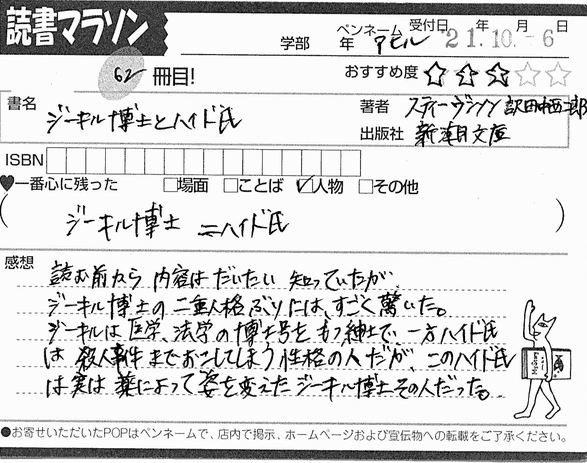 読書マラソン
学部 年 ペンネーム アヒル 受付日 '21.10.-6 年 月 日
62 冊目! おすすめ度 ☆☆☆☆☆
書名 ジーキル博士とハイド氏
著者 スティーヴンソン 訳田中西二郎
出版社 新潮文庫
ISBN
♥一番心に残った □場面 □ことば ☑人物 □その他
( ジーキル博士 =ハイド氏 )
感想
読む前から 内容は だいたい 知っていたが、
ジーキル博士の二重人格ぶりには、すごく驚いた。
ジーキルは 医学、法学の博士号をもつ紳士で、一方ハイド氏
は 殺人事件までおこしてしまう性格の人だが、このハイド氏
は実は 薬によって姿を変えたジーキル博士その人だった。
●お寄せいただいたPOPはペンネームで、店内で掲示、ホームページおよび宣伝物への転載をご了承ください。